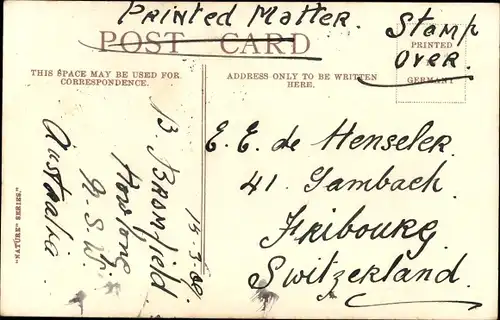 Printed Matter.
POST CARD
Stamp
over.
PRINTED
GERMANY
THIS SPACE MAY BE USED FOR
CORRESPONDENCE.
ADDRESS ONLY TO BE WRITTEN
HERE.
15-3-09.
B. Bromfield
N.S.W.
Australia
E. E. de Henseler.
41. Gambach.
Fribourg
Switzerland.
"NATURE" SERIES.